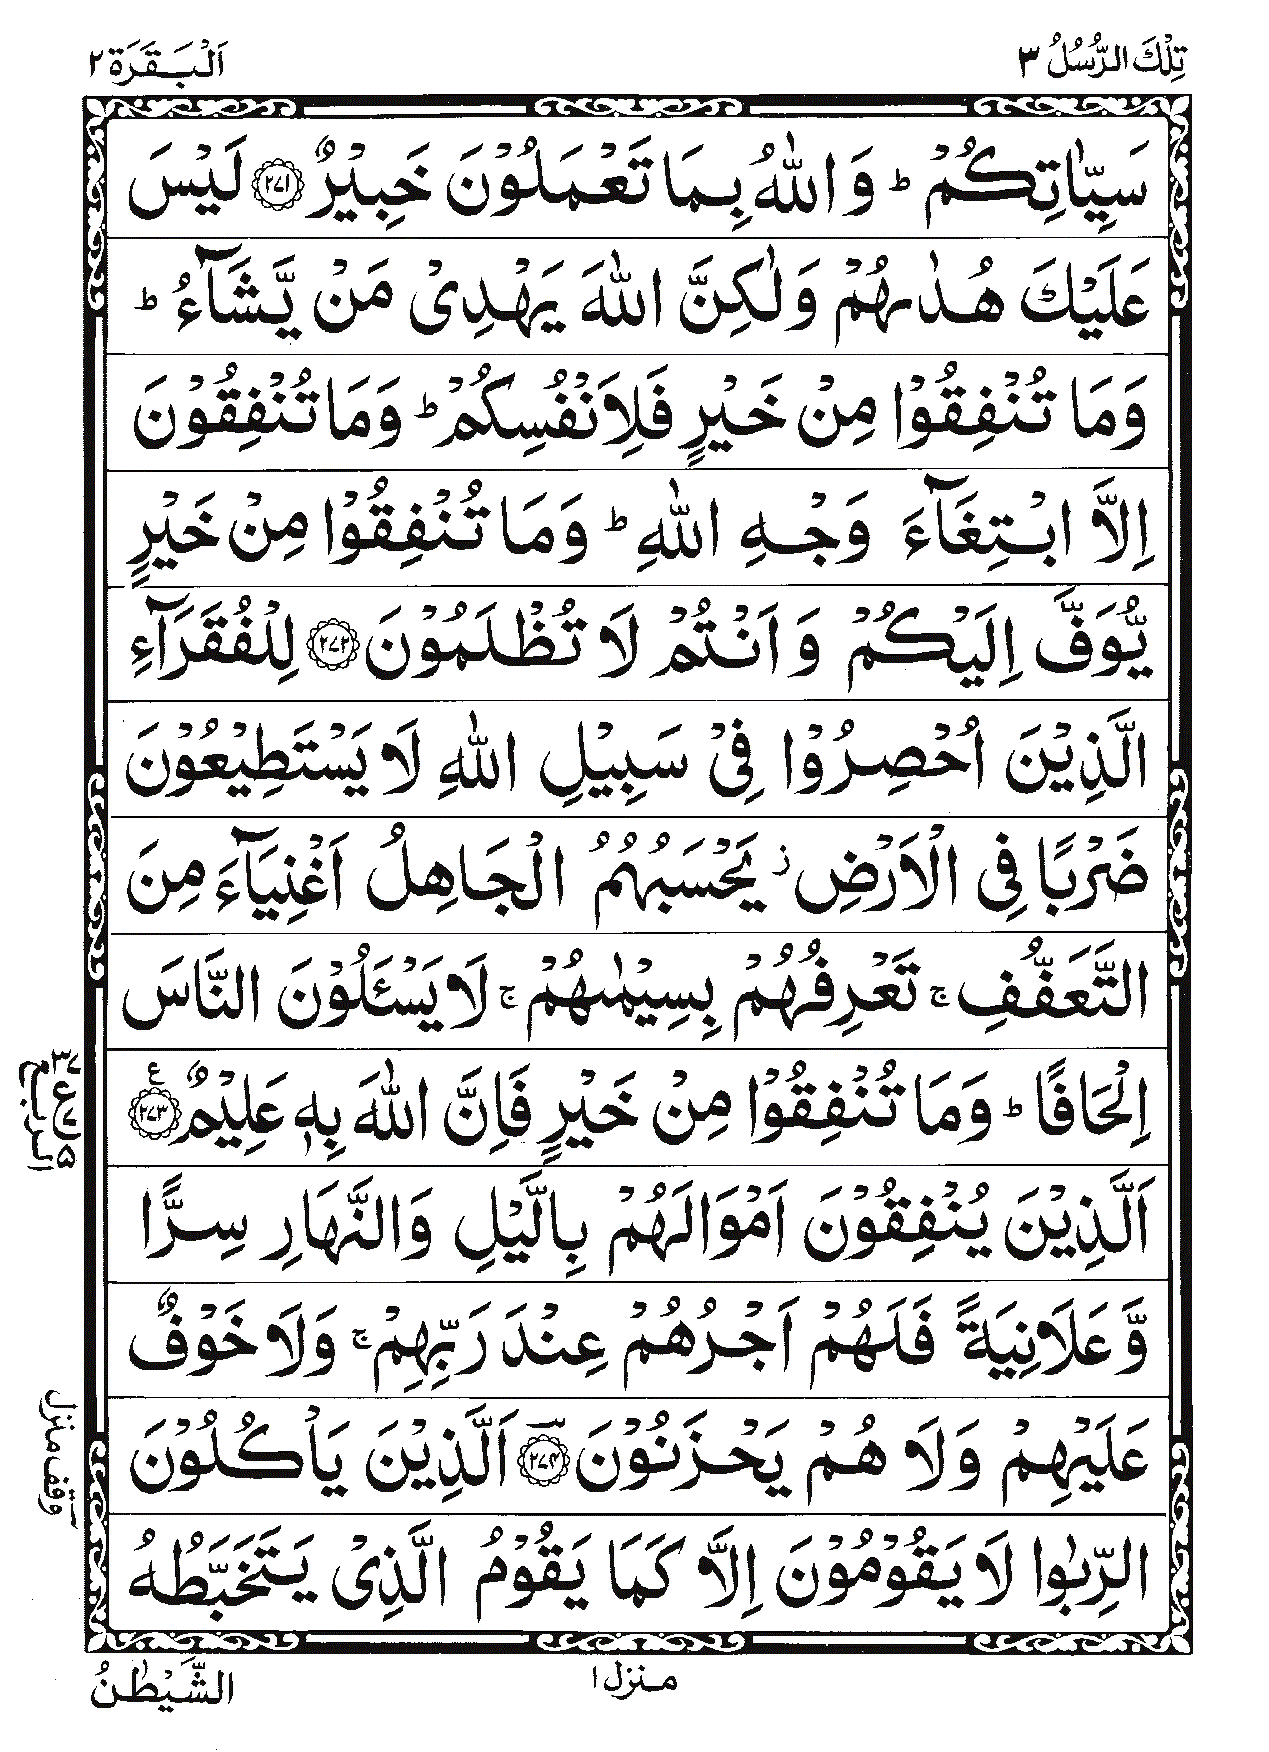 تِلْكَ الرُّسُلُ ٣
اَلْبَقَرَة ٢
سَیِّاٰتِكُمْ ؕ وَ اللّٰهُ بِمَا تَعْمَلُوْنَ خَبِیْرٌ ﴿۲۷۱﴾ لَیْسَ
عَلَیْكَ هُدٰىهُمْ وَلٰكِنَّ اللّٰهَ یَهْدِیْ مَنْ یَّشَآءُ ؕ
وَمَا تُنْفِقُوْا مِنْ خَیْرٍ فَلِاَنْفُسِكُمْ ؕ وَمَا تُنْفِقُوْنَ
اِلَّا ابْتِغَآءَ وَجْهِ اللّٰهِ ؕ وَمَا تُنْفِقُوْا مِنْ خَیْرٍ
یُّوَفَّ اِلَیْكُمْ وَ اَنْتُمْ لَا تُظْلَمُوْنَ ﴿۲۷۲﴾ لِلْفُقَرَآءِ
الَّذِیْنَ اُحْصِرُوْا فِیْ سَبِیْلِ اللّٰهِ لَا یَسْتَطِیْعُوْنَ
ضَرْبًا فِی الْاَرْضِ ؗ یَحْسَبُهُمُ الْجَاهِلُ اَغْنِیَآءَ مِنَ
التَّعَفُّفِ ۚ تَعْرِفُهُمْ بِسِیْمٰىهُمْ ۚ لَا یَسْـَٔلُوْنَ النَّاسَ
اِلْحَافًا ؕ وَمَا تُنْفِقُوْا مِنْ خَیْرٍ فَاِنَّ اللّٰهَ بِهٖ عَلِیْمٌ ﴿۲۷۳﴾ ع
اَلَّذِیْنَ یُنْفِقُوْنَ اَمْوَالَهُمْ بِالَّیْلِ وَالنَّهَارِ سِرًّا
وَّعَلَانِیَةً فَلَهُمْ اَجْرُهُمْ عِنْدَ رَبِّهِمْ ۚ وَلَا خَوْفٌ
عَلَیْهِمْ وَلَا هُمْ یَحْزَنُوْنَ ﴿۲۷۴﴾ اَلَّذِیْنَ یَاْكُلُوْنَ
الرِّبٰوا لَا یَقُوْمُوْنَ اِلَّا كَمَا یَقُوْمُ الَّذِیْ یَتَخَبَّطُهُ
٣٧ ع ٥
الربع
وقف منزل
منزل ١
الشَّیْطٰنُ